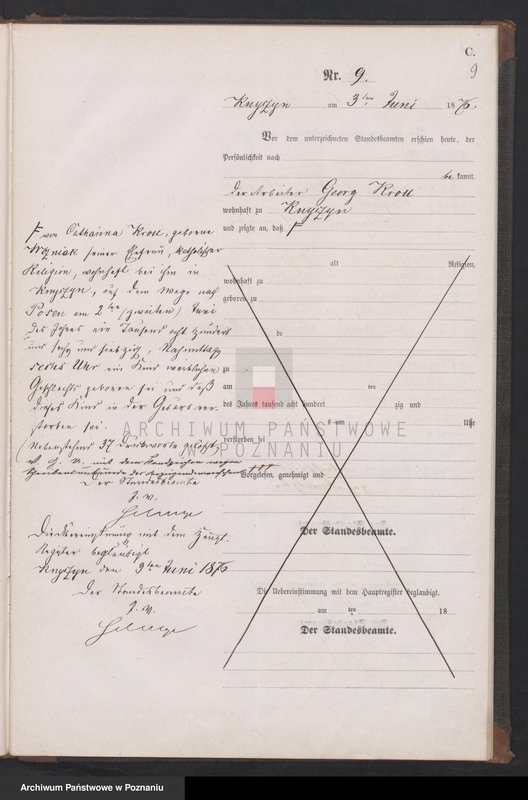 C.
9
Nr. 9.
Knyszyn am 3ten Juni 1876.
Vor dem unterzeichneten Standesbeamten erschien heute, der
Persönlichkeit nach
be kannt,
der Arbeiter Georg Kroll
wohnhaft zu Knyszyn
und zeigte an, daß
von Catharina Kroll, geborene
Wozniak seiner Ehefrau, katholischer
Religion, wohnhaft bei ihm in
Knyszyn, auf dem Wege nach
Posen am 2ten (zweiten) Juni
des Jahres ein Tausend acht Hundert
und sechs und siebzig, Nachmittags
sechs Uhr ein Kind weiblichen
Geschlechts geboren sei und daß
dieses Kind in der Geburt ver-
storben sei.
(Nebenstehend 37 Druckworte gelöscht)
V. G. U. mit dem Handzeichen wegen
Schreibensunkunde des Anzeigenden versehen +++
Der Standesbeamte
J. V.
Die Uebereinstimmung mit dem Haupt-
Register beglaubigt
Knyszyn den 3ten Juni 1876
Der Standesbeamte
J. V.
alt Religion,
wohnhaft zu
geboren zu
de
zu
am ten
des Jahres tausend acht hundert zig und
um Uhr
verstorben sei
Vorgelesen, genehmigt und
Der Standesbeamte.
Die Uebereinstimmung mit dem Hauptregister beglaubigt.
am ten 18
Der Standesbeamte.
ARCHIWUM PAŃSTWOWE
W POZNANIU
Archiwum Państwowe w Poznaniu